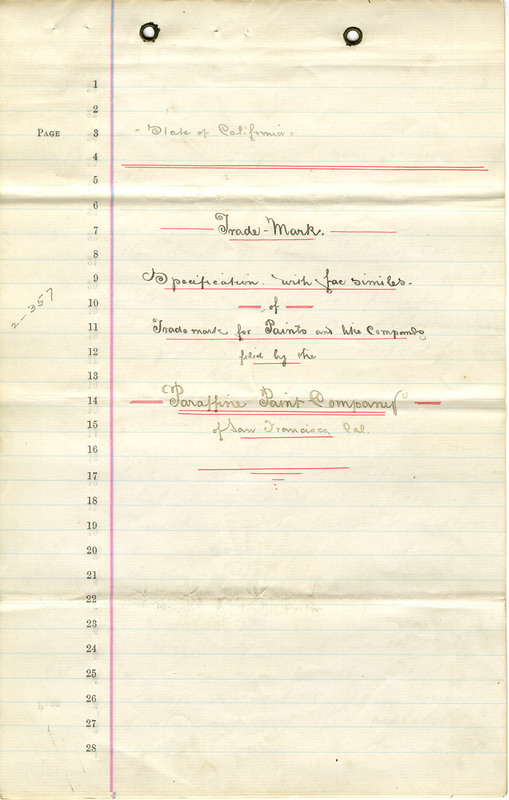 1
2
PAGE 3 - State of California -
4
5
6
7 Trade-Mark.
8
9 Specification. with fac similes.
10 of
11 Trade mark for Paints and like Compounds
12 filed by the
13
14 Paraffine Paint Company
15 of San Francisco, Cal.
16
17
18
19
20
21
22
23
24
25
26
27
28
2-357